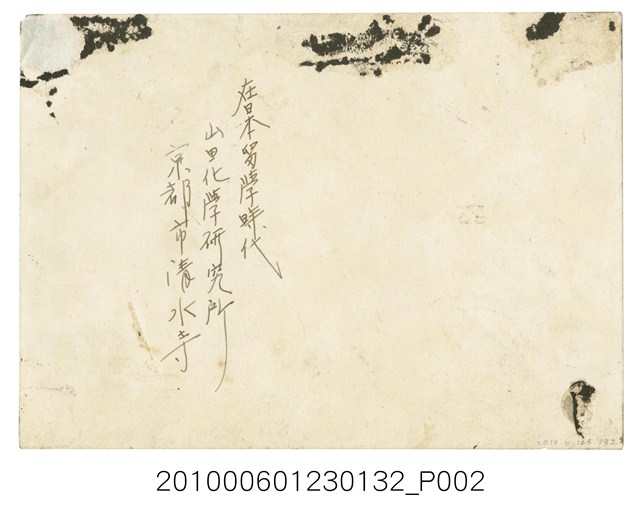 在日本留學時代
山田化学研究所
京都市清水寺
2010.6.123.132
201000601230132_P002